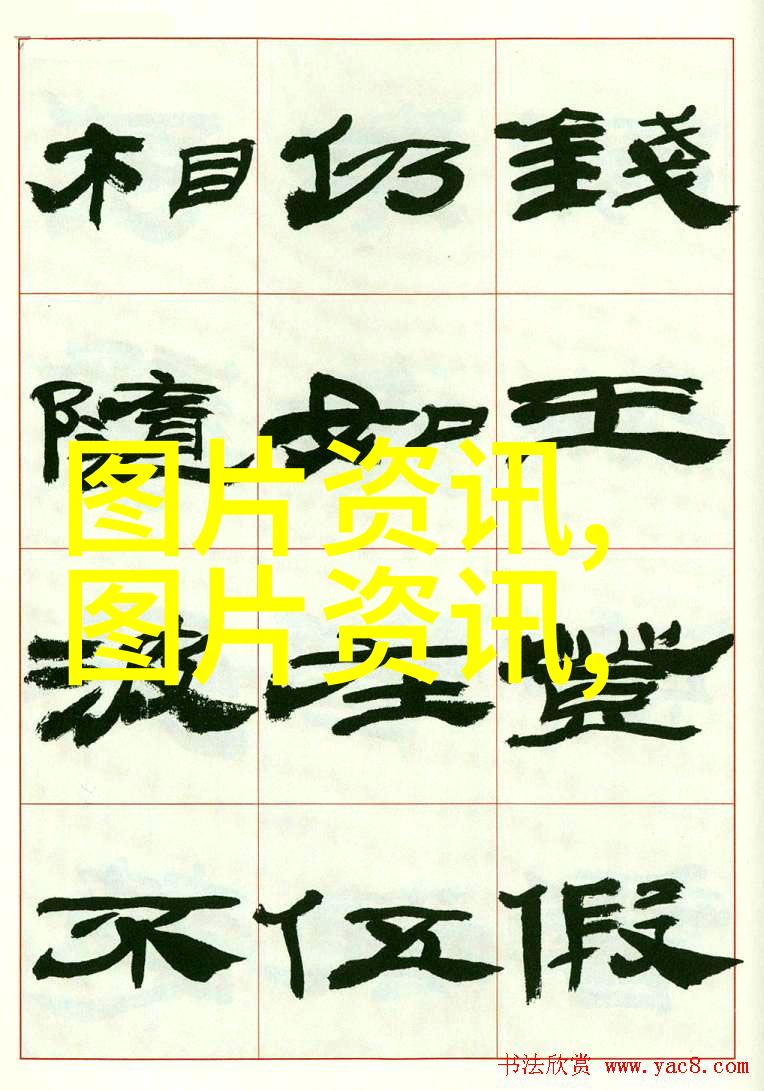 錢王假
仍如伍
相隨不
图片资讯,
图片资讯,
书法欣赏 www.yac8.com